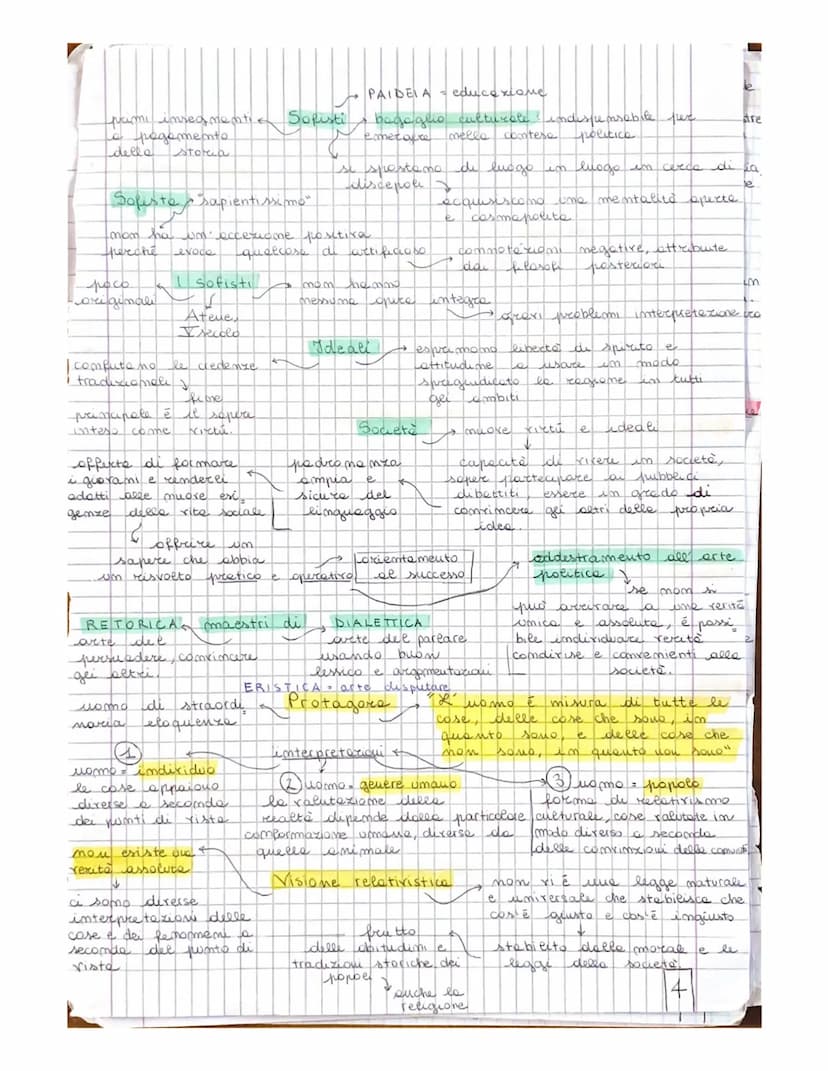 PAIDEIA = educazione
primi insegnanti Sofisti bagaglio culturale indispensabile per
a pagamento emergere nella contesa politica
della storia
si spostano di luogo in luogo in cerca di
discepoli
Sofista "sapientissimo" acquisiscono una mentalità aperta
e cosmopolita
non ha un'accezione positiva
perché evoca qualcosa di artificioso connotazioni negative, attribuite
dai filosofi posteriori
poco I Sofisti non hanno
originali nessuna opera integra
Atene, gravi problemi interpretazione
V secolo
Ideali esprimono libertà di spirito e
confutano le credenze attitudine a usare in modo
tradizionali spregiudicato la ragione in tutti
fine gli ambiti
principale è il sapere
inteso come virtù.
Società nuove virtù e ideali
offerta di formare padronanza capacità di vivere in società,
i giovani e renderli ampia e saper partecipare ai pubblici
adatti alle nuove esi- sicura del dibattiti, essere in grado di
genze della vita sociale linguaggio convincere gli altri della propria
idea.
offrire un
sapere che abbia orientamento addestramento all'arte
un risvolto pratico e operativo al successo politica
se non si
può arrivare a una verità
RETORICA maestri di DIALETTICA unica e assoluta, è possi
arte del arte del parlare bile individuare verità
persuadere, convincere usando buon condivise e convenienti alla
gli altri. lessico e argomentazioni società.
ERISTICA = arte disputare
uomo di straordi Protagora "L'uomo è misura di tutte le
naria eloquenza cose, delle cose che sono, in
quanto sono, e delle cose che
1 interpretazioni non sono, in quanto non sono"
uomo = individuo 2 uomo = genere umano 3 uomo = popolo
le cose appaiono la valutazione della forma di relativismo
diverse a seconda realtà dipende dalla particolare culturale, cose valutate in
dei punti di vista conformazione umana, diversa da modo diverso a seconda
non esiste una quella animale delle convinzioni della comunità
verità assoluta
Visione relativistica non vi è una legge naturale
ci sono diverse e universale che stabilisca che
interpretazioni delle cos'è giusto e cos'è ingiusto
cose e dei fenomeni a frutto
seconda del punto di delle abitudini e stabilito dalla morale e le
vista tradizioni storiche dei leggi della società
popoli
anche la
religione
4